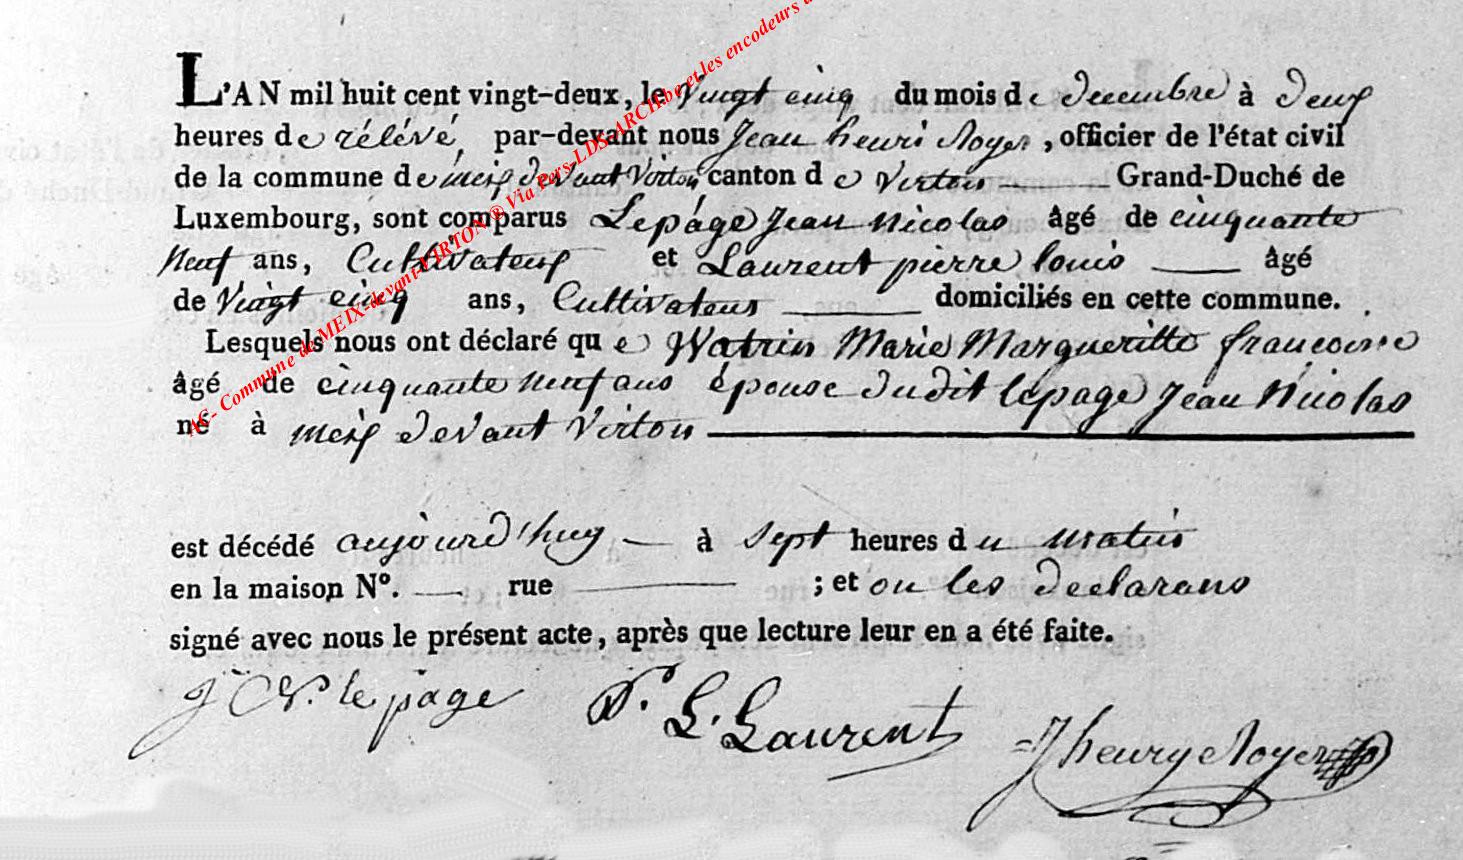 L'AN mil huit cent vingt-deux, le Vingt cinq du mois de decembre à deux
heures de rélévé, par-devant nous Jean henri Noyer, officier de l'état civil
de la commune de meix devant Virton canton de Virton Grand-Duché de
Luxembourg, sont comparus Lepage Jean Nicolas âgé de cinquante
neuf ans, Cultivateur et Laurent pierre louis âgé
de Vingt cinq ans, Cultivateur domiciliés en cette commune.
Lesquels nous ont déclaré que Watrin Marie Margueritte françoise
âgé de cinquante neuf ans épouse dudit lepage Jean Nicolas
né à meix devant Virton
est décédé aujourd'huy à sept heures du matin
en la maison N°. rue ; et ou les declarans
signé avec nous le présent acte, après que lecture leur en a été faite.
J N. le page P. L. Laurent J henry Noyer
AC- Commune de MEIX-devant-VIRTON ® Via Pers-LDS-ARCH.be et les encodeurs